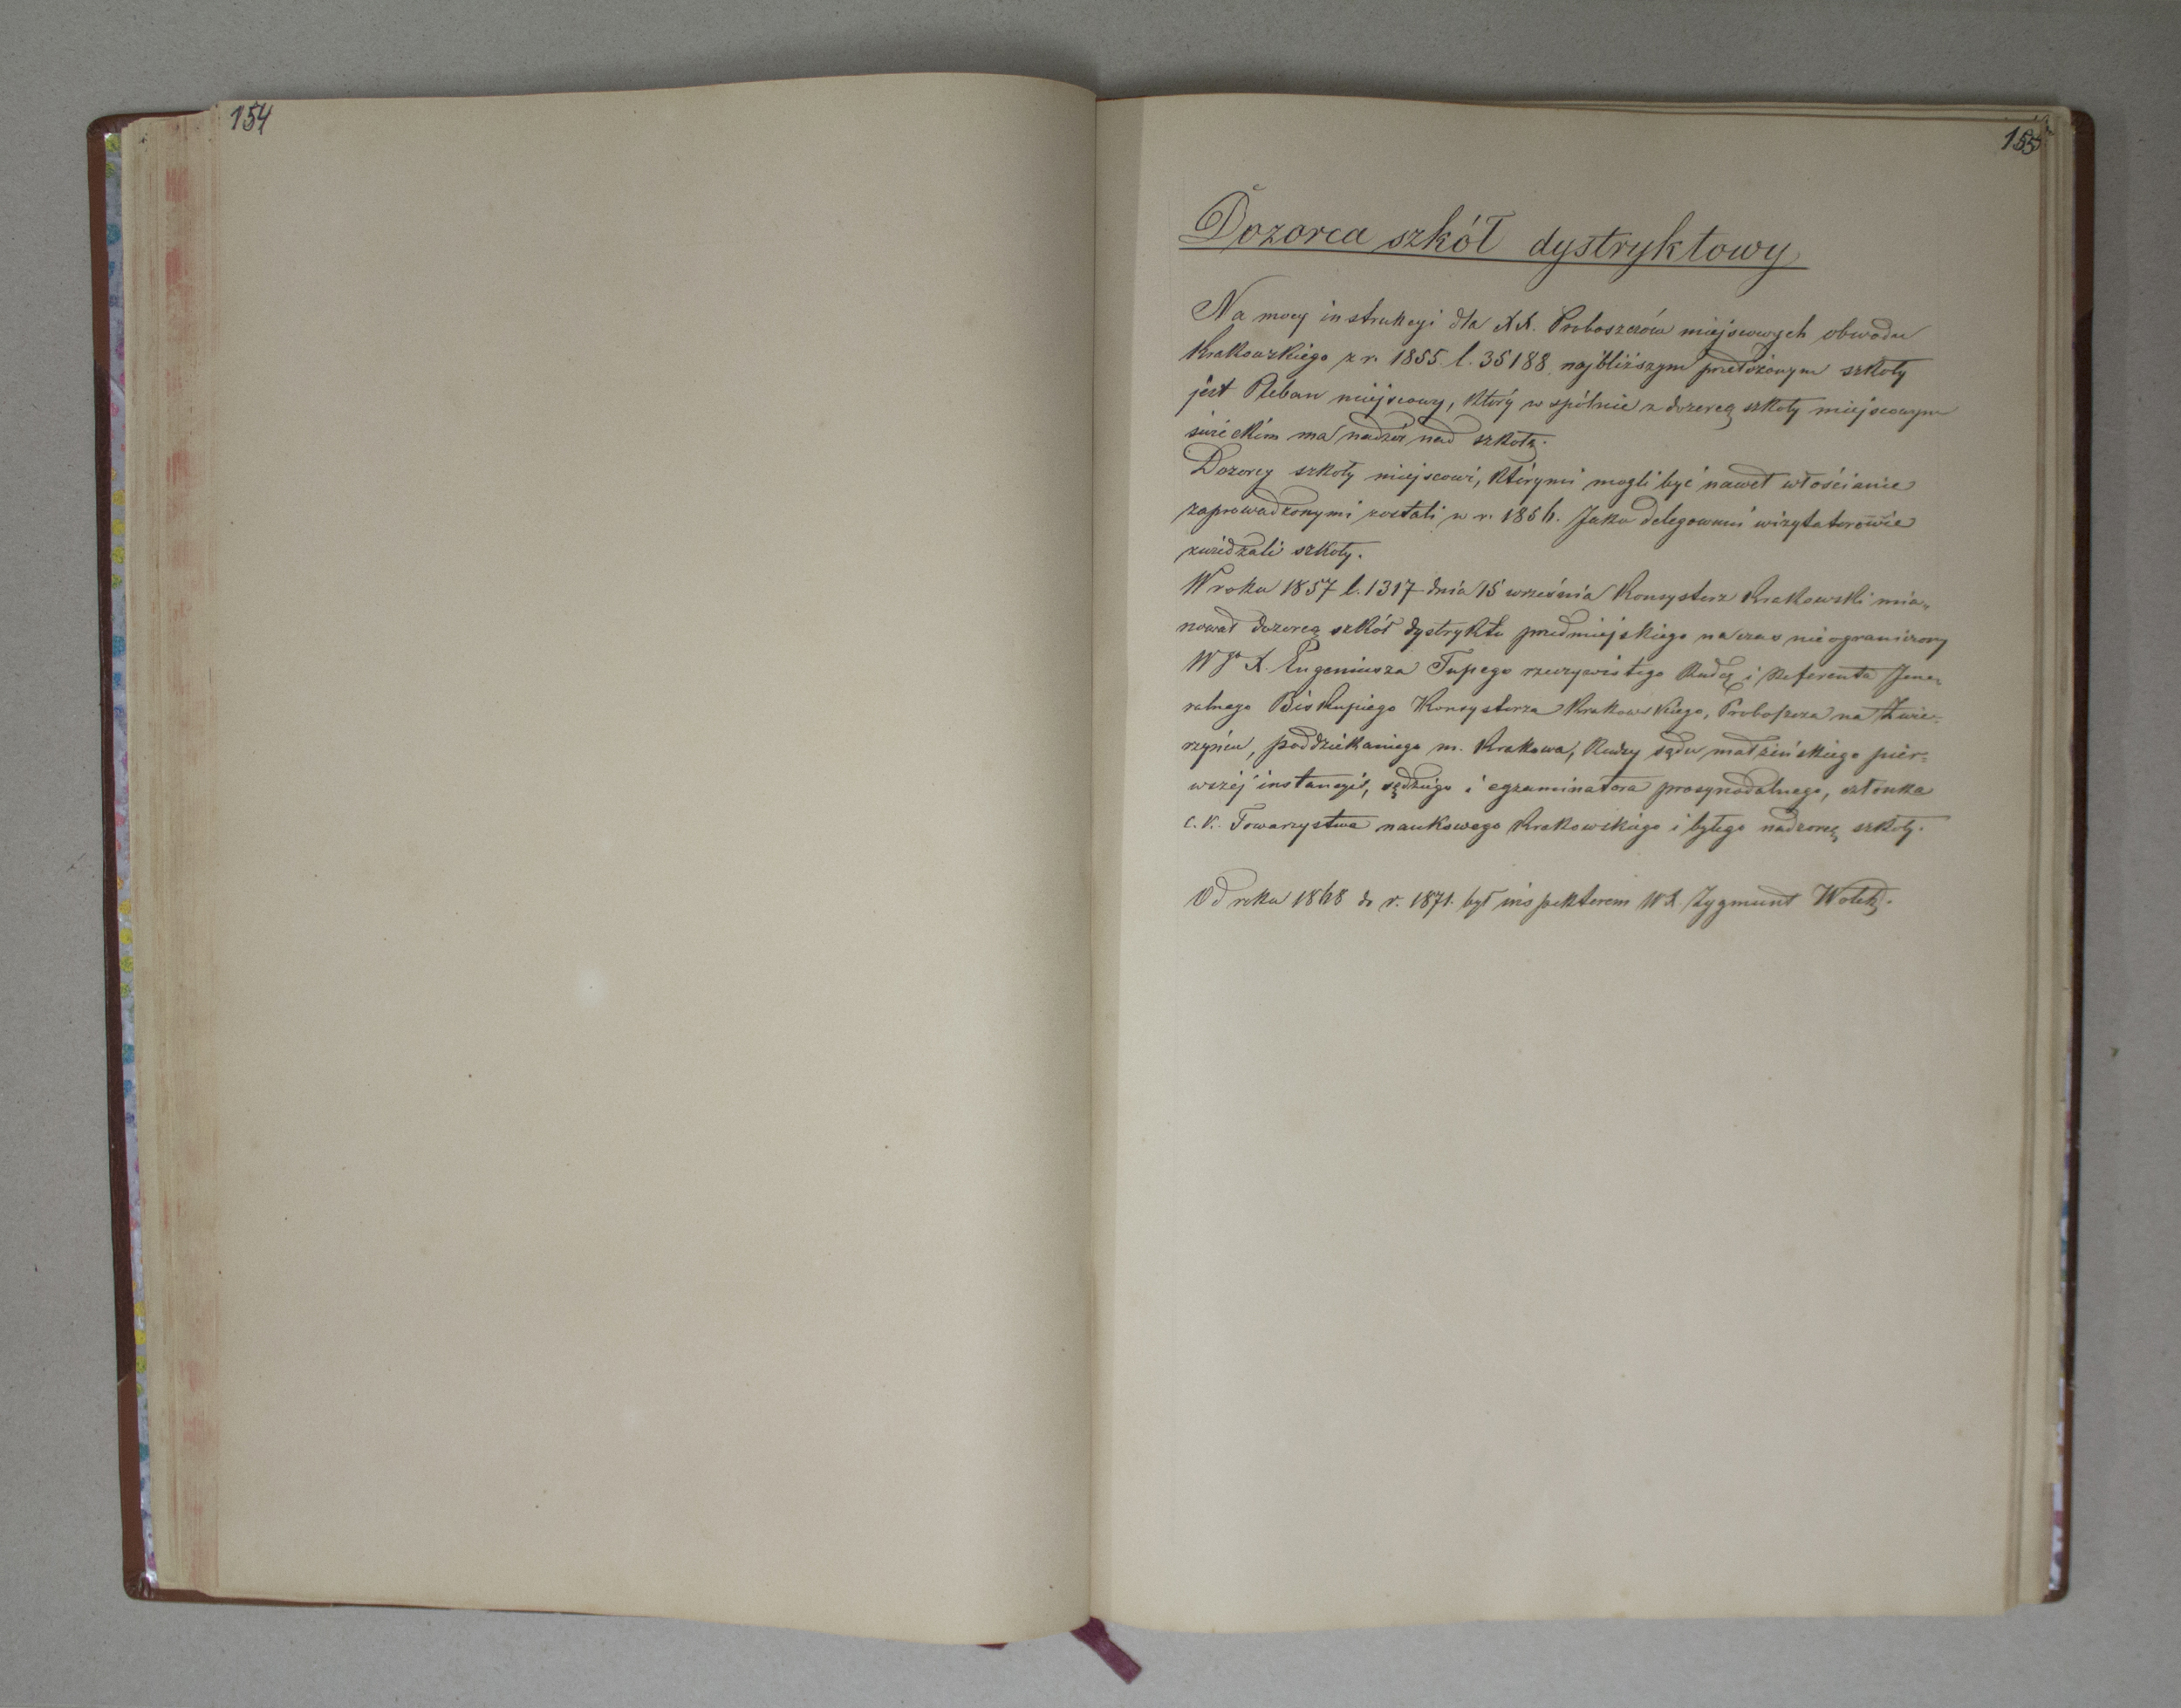 154
155
Dozorca szkół dystryktowy
Na mocy instrukcyi dla XX. Proboszczów miejscowych obwodu
Krakowskiego z r. 1855 l. 35188 najbliższym przełożonym szkoły
jest Pleban miejscowy, który wspólnie z dozorcą szkoły miejscowym
świeckim ma nadzór nad szkołą.
Dozorcy szkoły miejscowi, którymi mogli być nawet włościanie
zaprowadzonymi zostali w r. 1856. Jako delegowani wizytatorowie
zwidzali szkoły.
W roku 1857 l. 1317 dnia 15 września Konsystorz Krakowski mia„
nował dozorcą szkół dystryktu przedmiejskiego na czas nieograniczony
Wgo X. Eugeniusza Tupego rzeczywistego Radcę i Referenta Jene„
ralnego Biskupiego Konsystorza Krakowskiego, Proboszcza na Zwie„
rzyńcu, poddziekaniego m. Krakowa, Radzy sądu małżeńskiego pier„
wszéj instancyi, sędziego i egzaminatora prosynodalnego, członka
c. k. Towarzystwa naukowego Krakowskiego i byłego nadzorcę szkoły.
Od roku 1868 do r. 1871. był inspektorem WX. Zygmunt